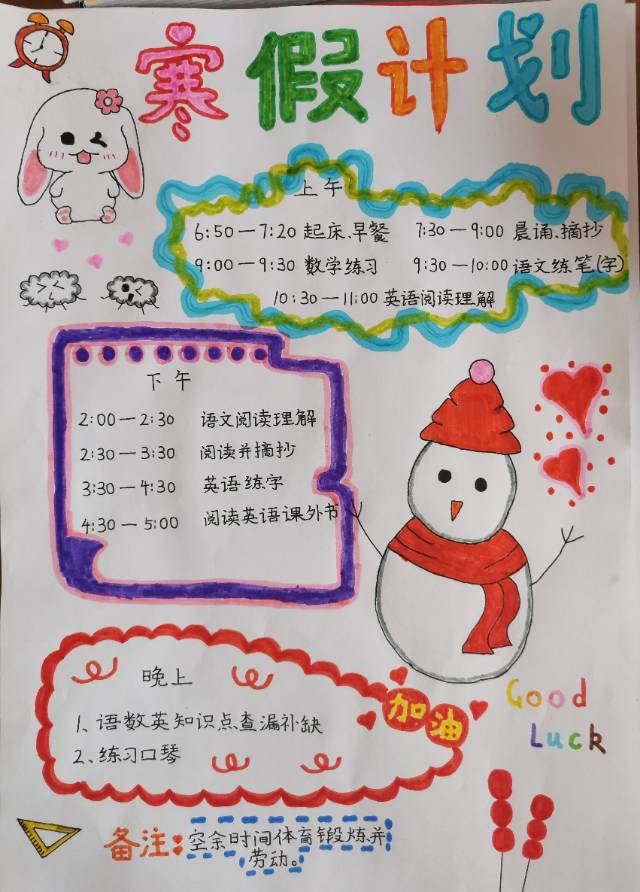 寒假计划
上午
6:50—7:20 起床、早餐 7:30—9:00 晨诵、摘抄
9:00—9:30 数学练习 9:30—10:00 语文练笔(字)
10:30—11:00 英语阅读理解
下午
2:00—2:30 语文阅读理解
2:30—3:30 阅读并摘抄
3:30—4:30 英语练字
4:30—5:00 阅读英语课外书
晚上
1、语数英知识点查漏补缺
2、练习口琴
加油
Good
Luck
备注:空余时间体育锻炼并
劳动。